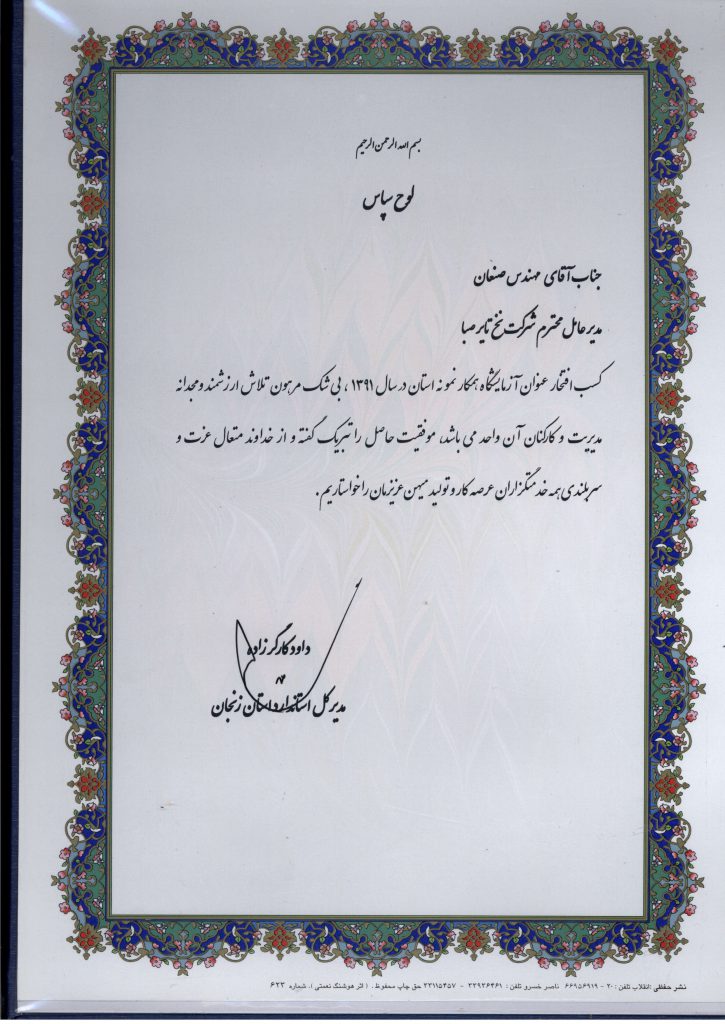 بسم الله الرحمن الرحیم
لوح سپاس
جناب آقای مهندس صنعان
مدیر عامل محترم شرکت نخ تایر صبا
کسب افتخار عنوان آزمایشگاه همکار نمونه استان در سال ۱۳۹۱ ، بی شک مرهون تلاش ارزشمند و مجدانه
مدیریت و کارکنان آن واحد می باشد، موفقیت حاصل را تبریک گفته و از خداوند متعال عزت و
سربلندی همه خدمتگزاران عرصه کار و تولید میهن عزیزمان را خواستاریم .
داود کارگرزاده
مدیر کل استاندارد استان زنجان
نشر حفظی :انقلاب تلفن : ۲۰ - ۶۶۹۵۶۹۱۹ ناصر خسرو تلفن : ۳۳۹۳۶۴۶۱ - ۳۳۱۱۵۴۵۷ حق چاپ محفوظ . ( اثر هوشنگ نعمتی ). شماره ۶۲۳